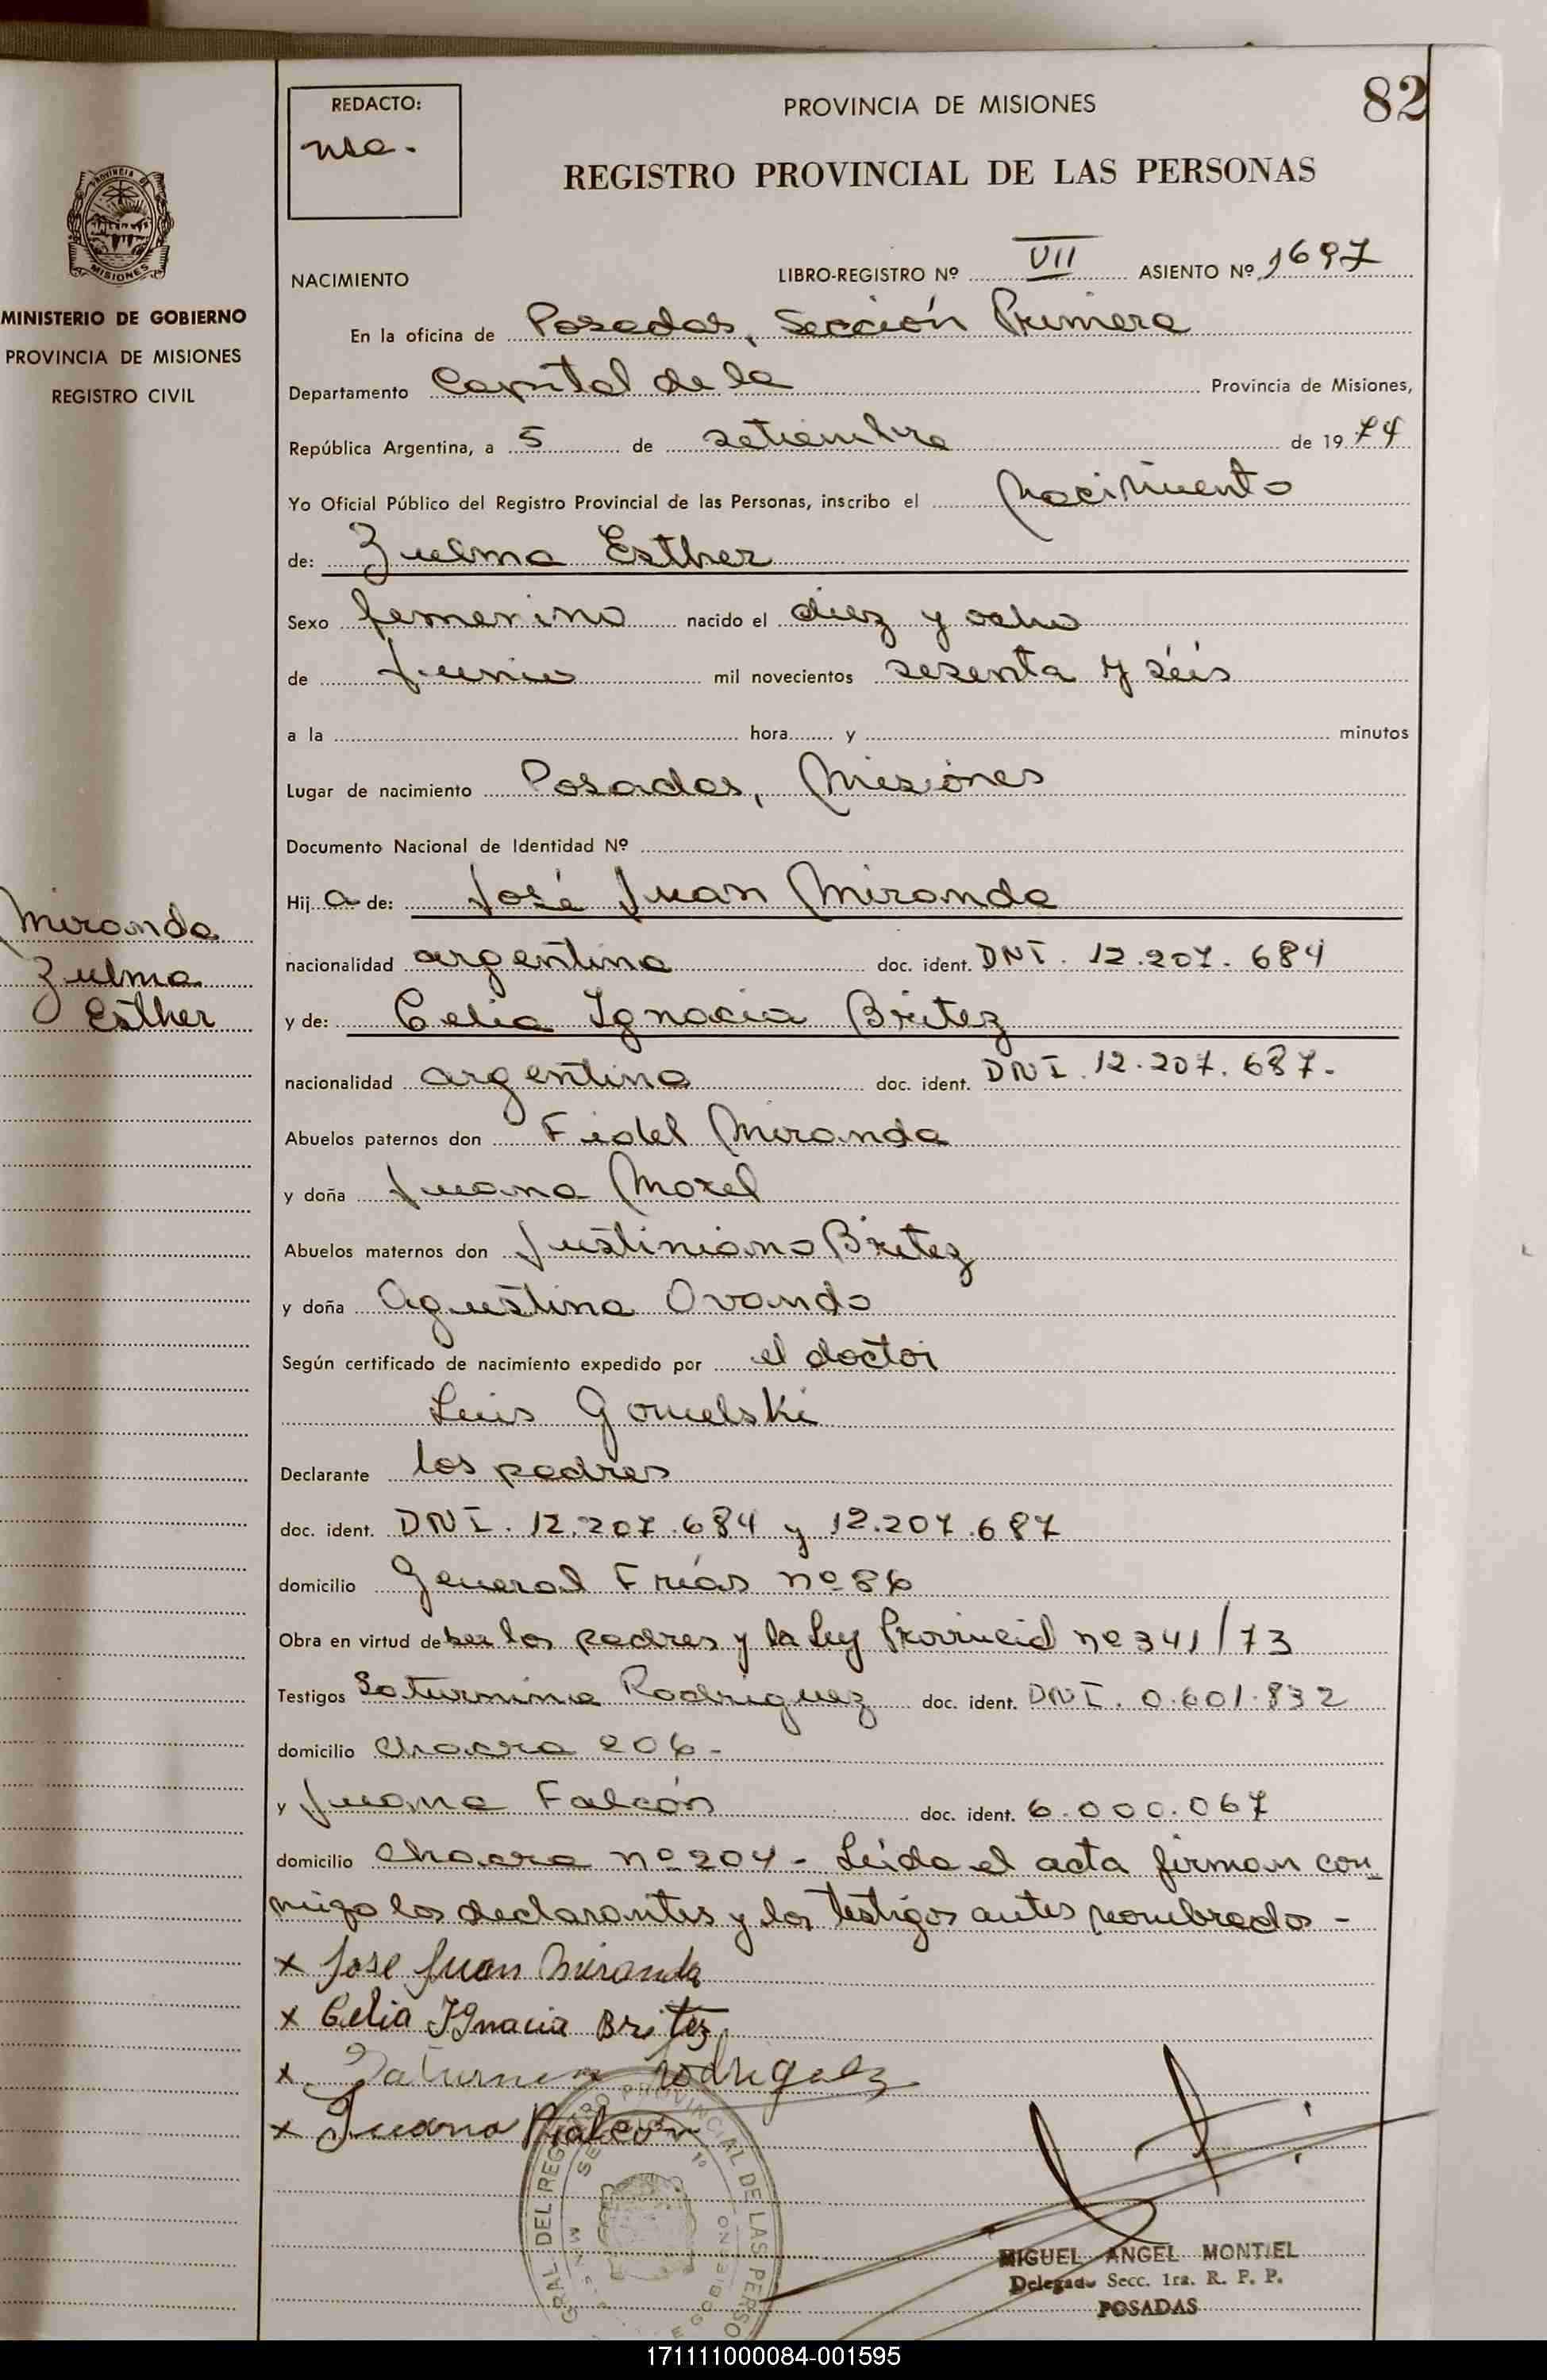 REDACTO:
PROVINCIA DE MISIONES
82
REGISTRO PROVINCIAL DE LAS PERSONAS
MISIONES
MINISTERIO DE GOBIERNO
PROVINCIA DE MISIONES
REGISTRO CIVIL
NACIMIENTO LIBRO-REGISTRO Nº VII ASIENTO Nº 1697
En la oficina de Posadas, Sección Primera
Departamento Capital de la Provincia de Misiones,
República Argentina, a 5 de setiembre de 1974
Yo Oficial Público del Registro Provincial de las Personas, inscribo el Nacimiento
de: Zulma Esther
Sexo femenino nacido el diez y ocho
de Junio mil novecientos sesenta y séis
a la hora y minutos
Lugar de nacimiento Posadas, Misiones
Documento Nacional de Identidad Nº
Hij a de: José Juan Miranda
nacionalidad argentina doc. ident. DNI. 12.207.684
y de: Celia Ignacia Britez
nacionalidad argentina doc. ident. DNI. 12.207.687.-
Miranda
Zulma
Esther
Abuelos paternos don Fidel Miranda
y doña Juana Morel
Abuelos maternos don Justiniano Britez
y doña Agustina Ovando
Según certificado de nacimiento expedido por el doctor
Luis
Declarante los padres
doc. ident. DNI. 12.207.684 y 12.207.687
domicilio General Frías nº 86
Obra en virtud de ser los padres y la Ley Provincial nº 341/73
Testigos Saturnina Rodriguez doc. ident. DNI. 0.601.832
domicilio chacra 206-
y Juana Falcón doc. ident. 6.000.067
domicilio chacra nº 204 - Leída el acta firman con
migo los declarantes y los testigos antes nombrados -
x Jose Juan Miranda
x Celia Ignacia Britez
x Saturnina Rodriguez
x Juana Falcon
MIGUEL ANGEL MONTIEL
Delegado Secc. 1ra. R. P. P.
POSADAS
171111000084-001595